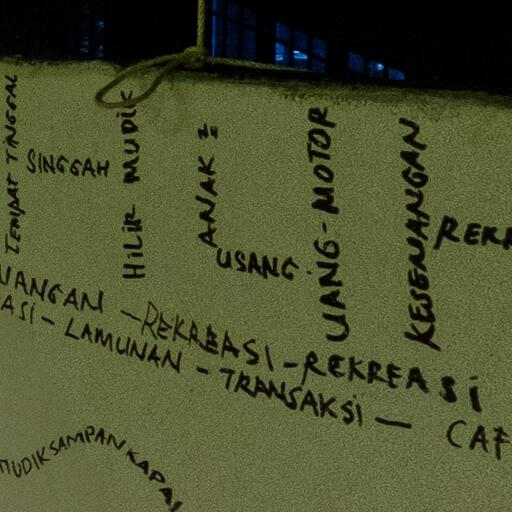 TEMPAT TINGGAL
SINGGAH
HILIR MUDIK
ANAK 2
USANG
UANG-MOTOR
KESENANGAN
- REKREASI - REKREASI
- LAMUNAN - TRANSAKSI -
MUDIK SAMPAN KAPAL